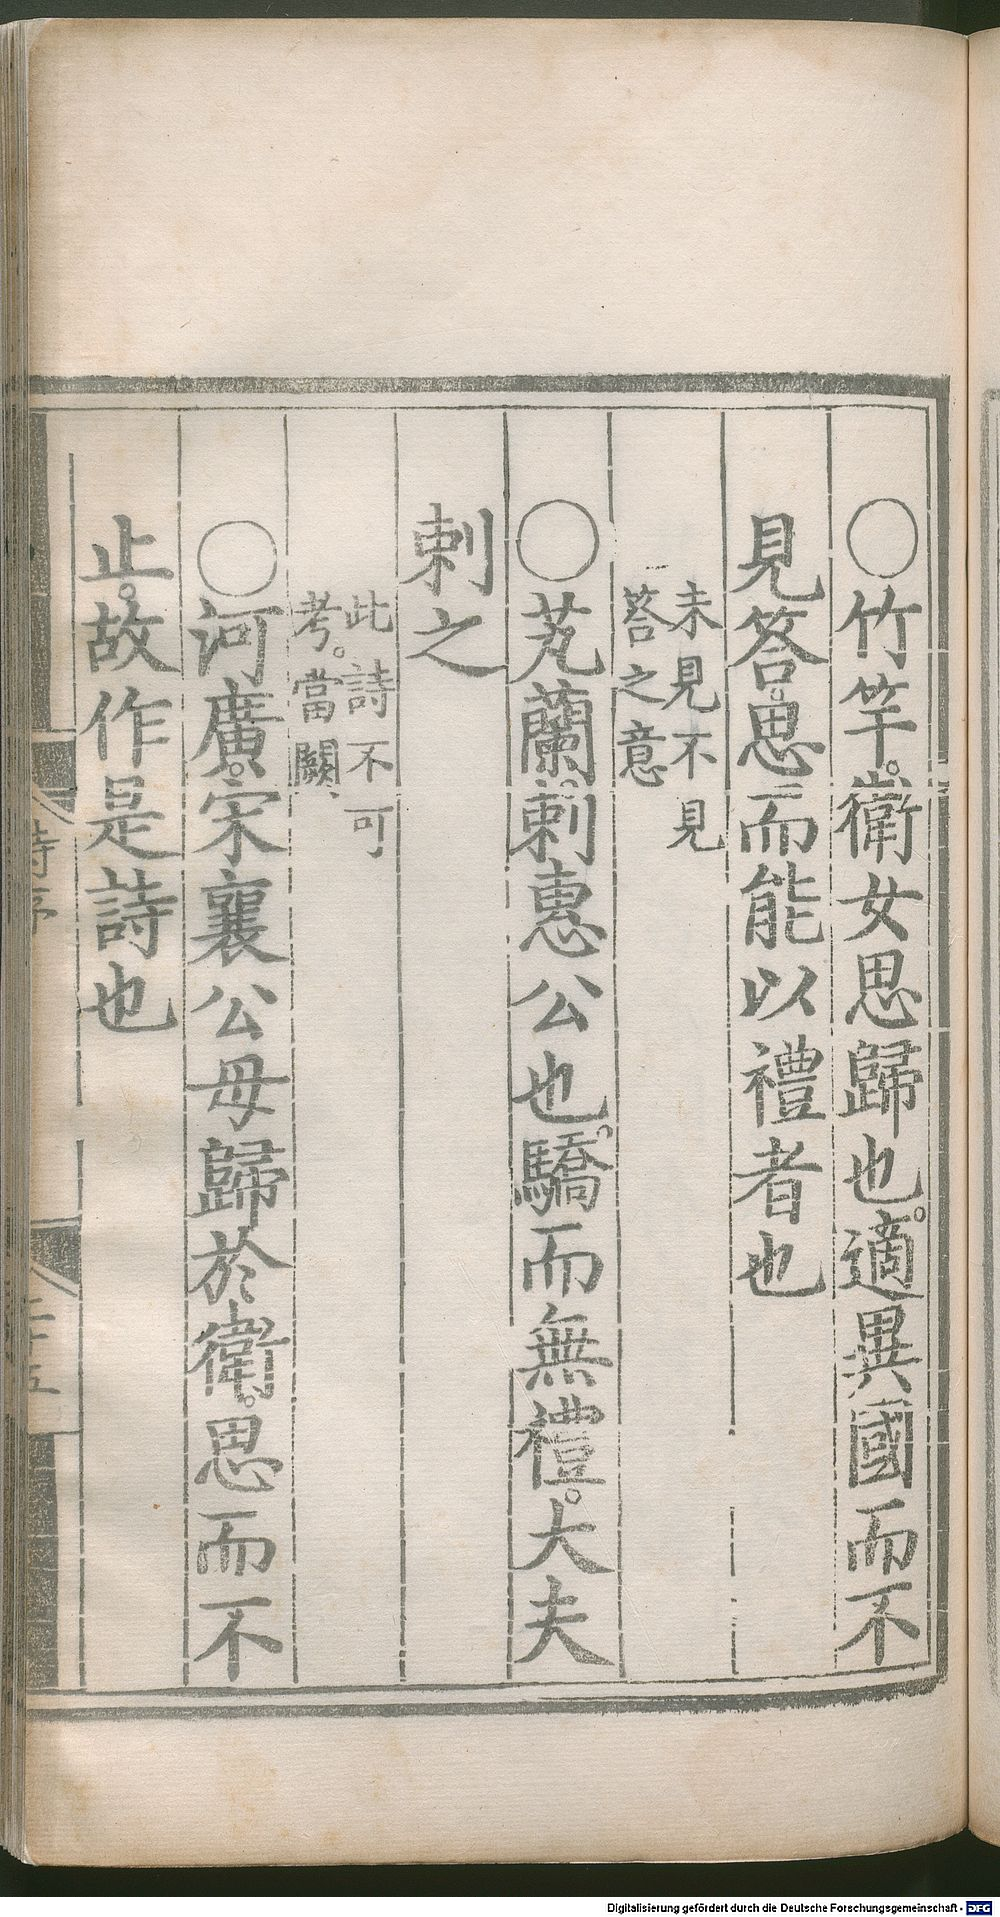 ○竹竿。衛女思歸也。適異國而不
見答。思而能以禮者也
未見不見
答之意
○芄蘭。刺惠公也。驕而無禮。大夫
刺之
此詩不可
考。當闕、
○河廣。宋襄公母歸於衛。思而不
止。故作是詩也
詩序
二十五
Digitalisierung gefördert durch die Deutsche Forschungsgemeinschaft - DFG